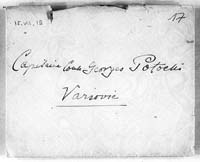 15.VII.18
17
Capitaine Comte Georges Potocki
Varsovie